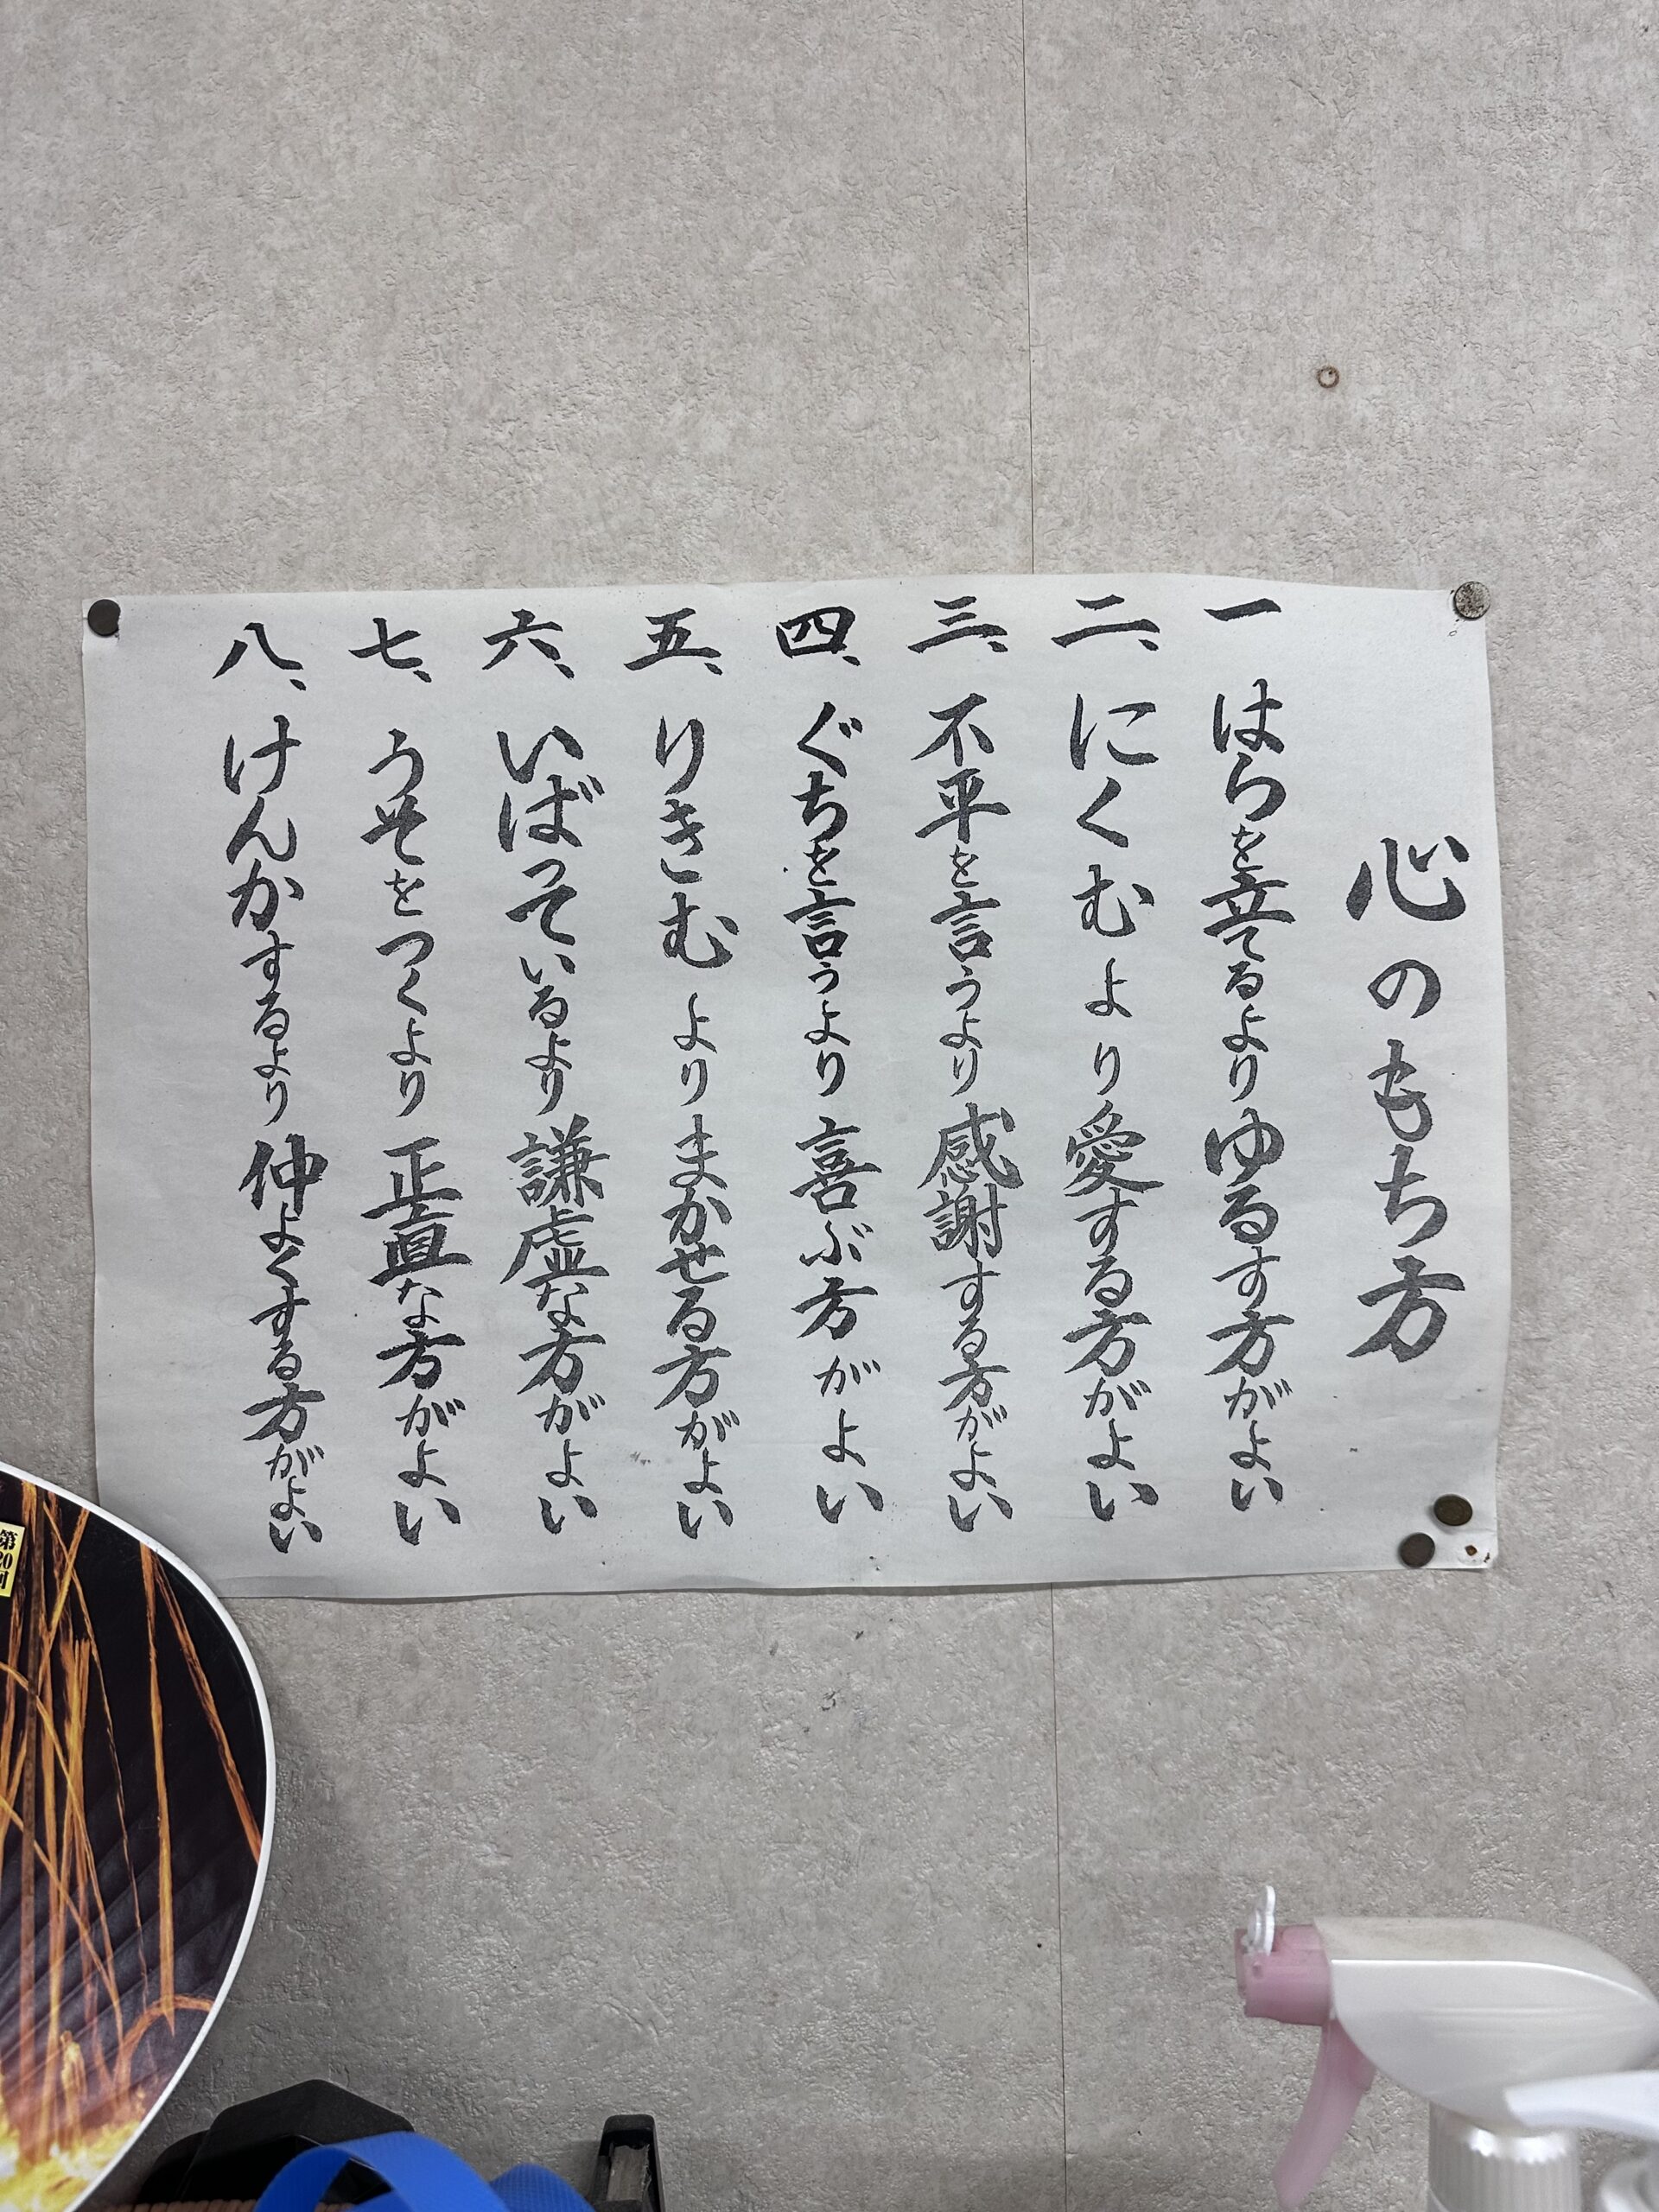 心のもち方
一 はらを立てるよりゆるす方がよい
二、にくむより愛する方がよい
三、不平を言うより感謝する方がよい
四、ぐちを言うより喜ぶ方がよい
五、りきむよりまかせる方がよい
六、いばっているより謙虚な方がよい
七、うそをつくより正直な方がよい
八、けんかするより仲よくする方がよい
第20回